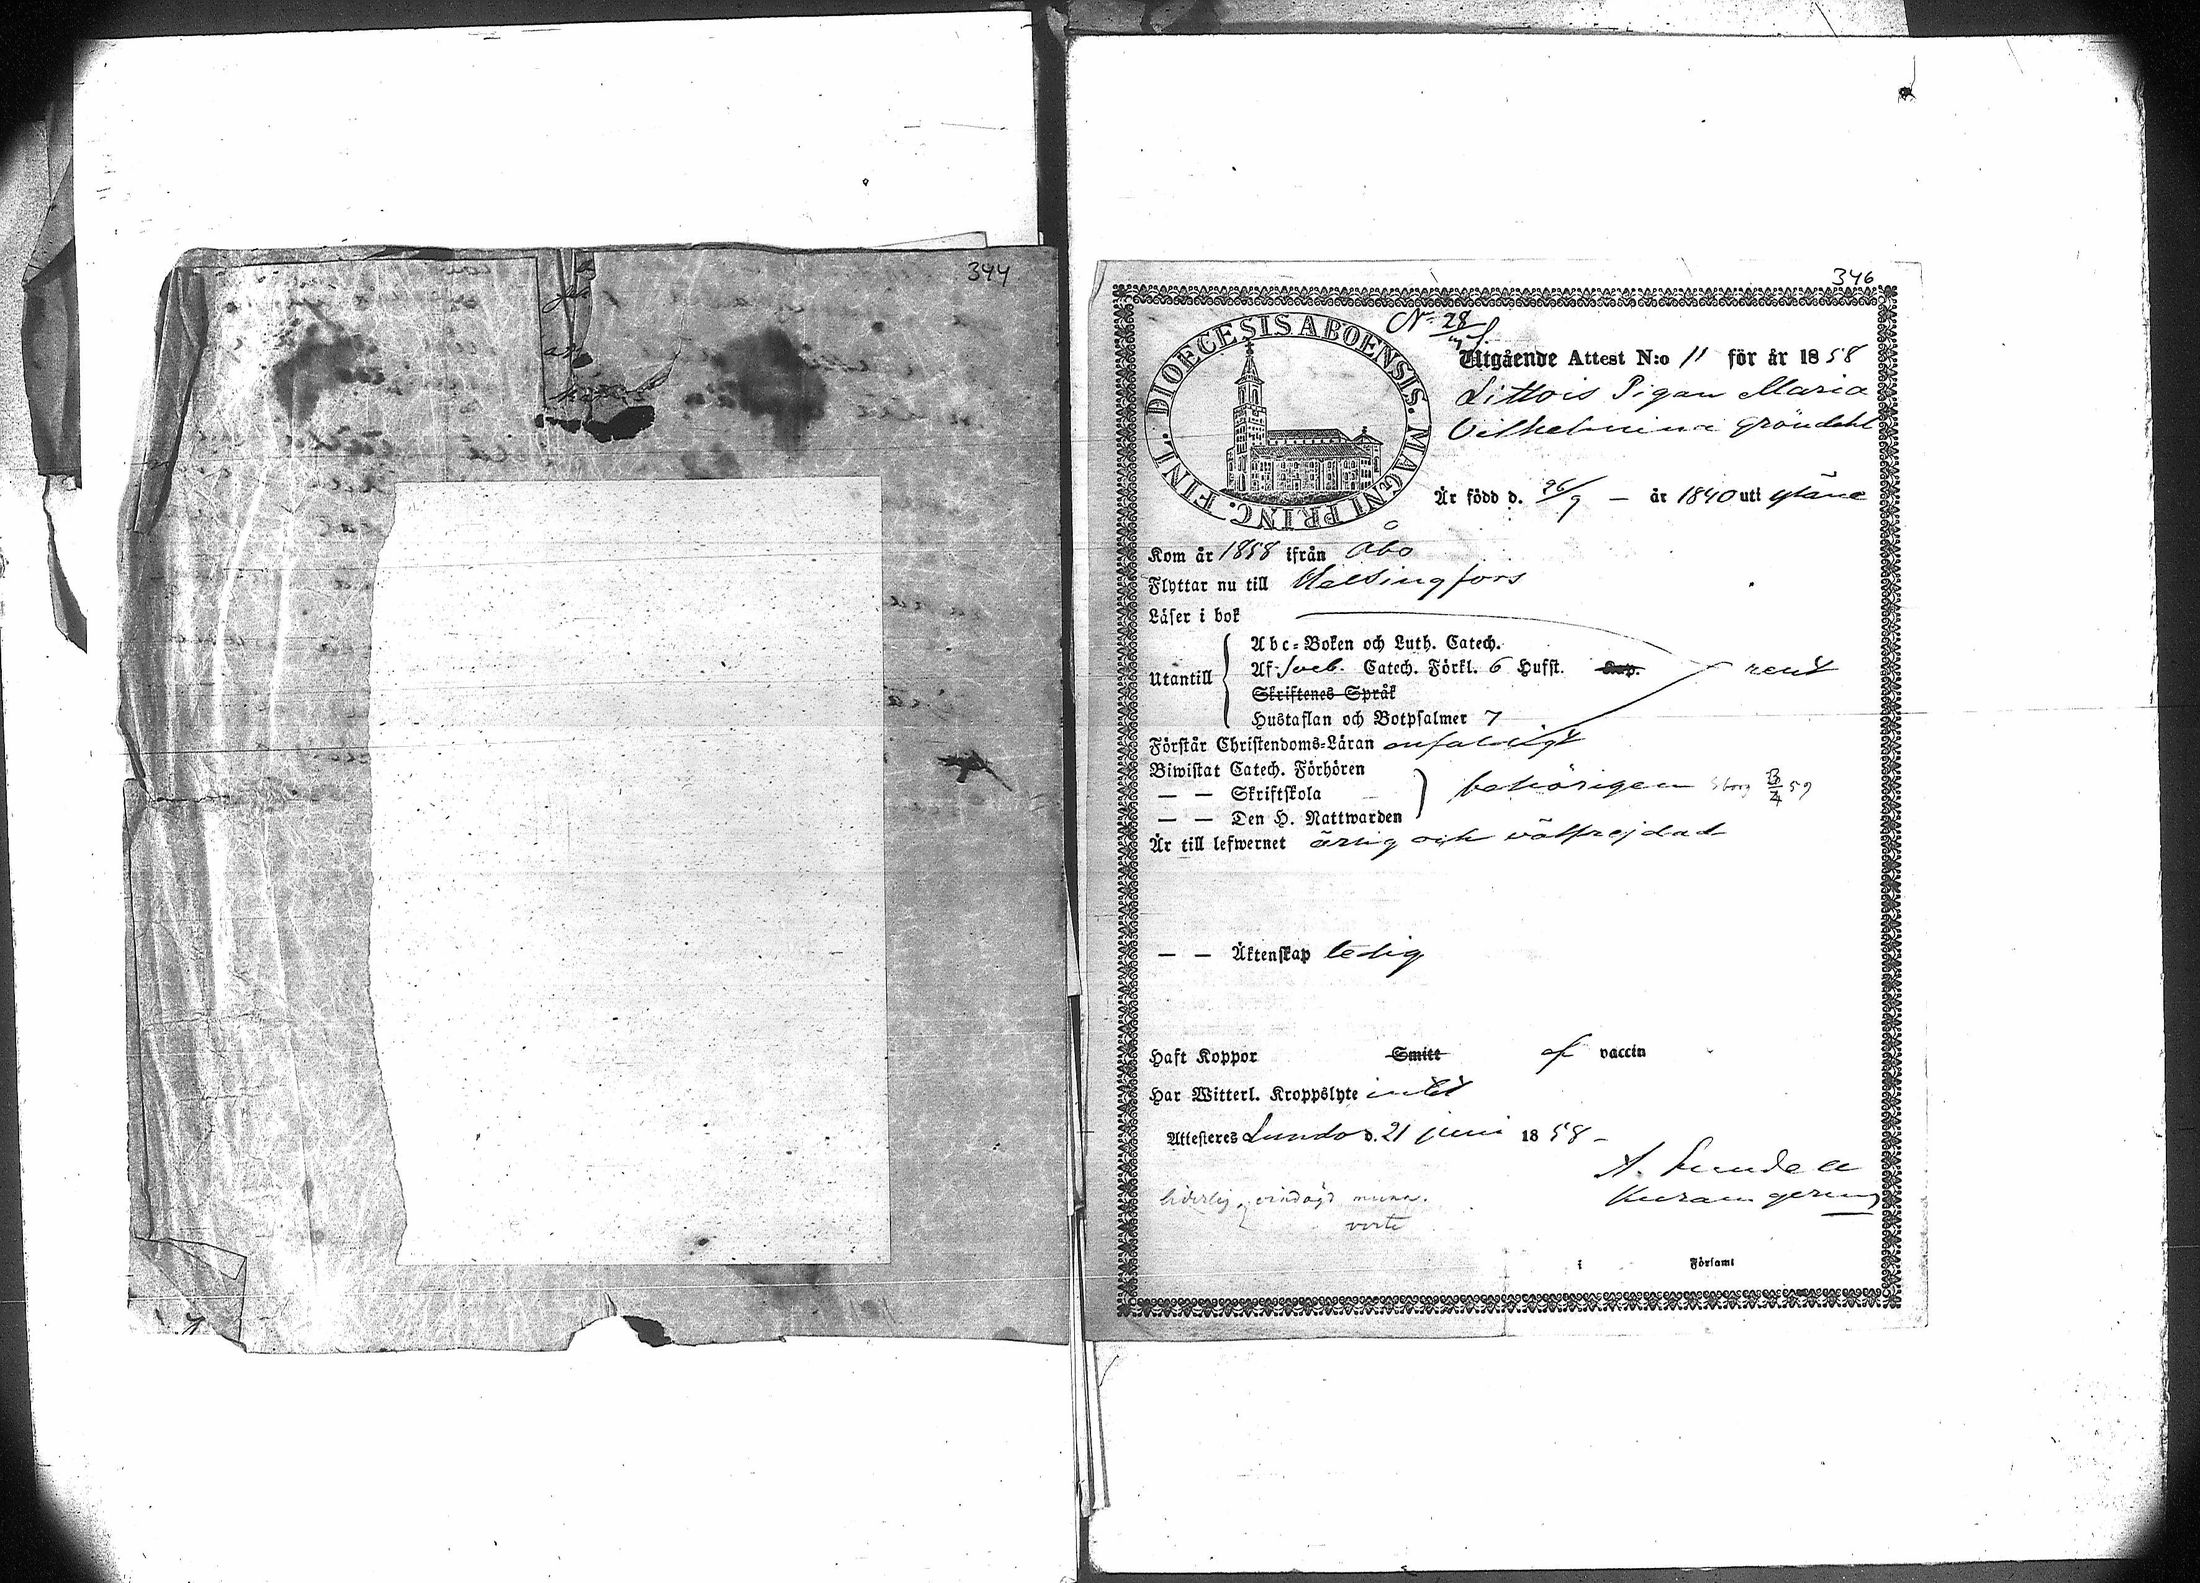 344
346
N:o 28
DIOECESIS ABOENSIS. MAGNI PRINC. FINL.
Utgående Attest N:o 11 för år 1858
Littois Pigan Maria
Vilhelmina Gröndahl
Är född d. 26/9 — år 1840 uti Yläne
Kom år 1858 ifrån Åbo
Flyttar nu till Helsingfors
Läser i bok
Abc-Boken och Luth. Catech.
Utantill Af Sveb. Catech. Förkl. 6 Hufst. Cap. rent
Skriftenes Språk
Hustaflan och Botpsalmer 7
Förstår Christendoms-Läran enfaldigt
Biwistat Catech. Förhören
— — Skriftskola behörigen 13/4 59
— — Den H. Nattwarden
Är till lefwernet ärlig och välfrejdad
— — Äktenskap ledig
Haft Koppor Smitt af vaccin
Har Witterl. Kroppslyte intet
Attesteras Lundo d. 21 juni 1858 -
A. Lundell
liderlig, vindögd
i Församl